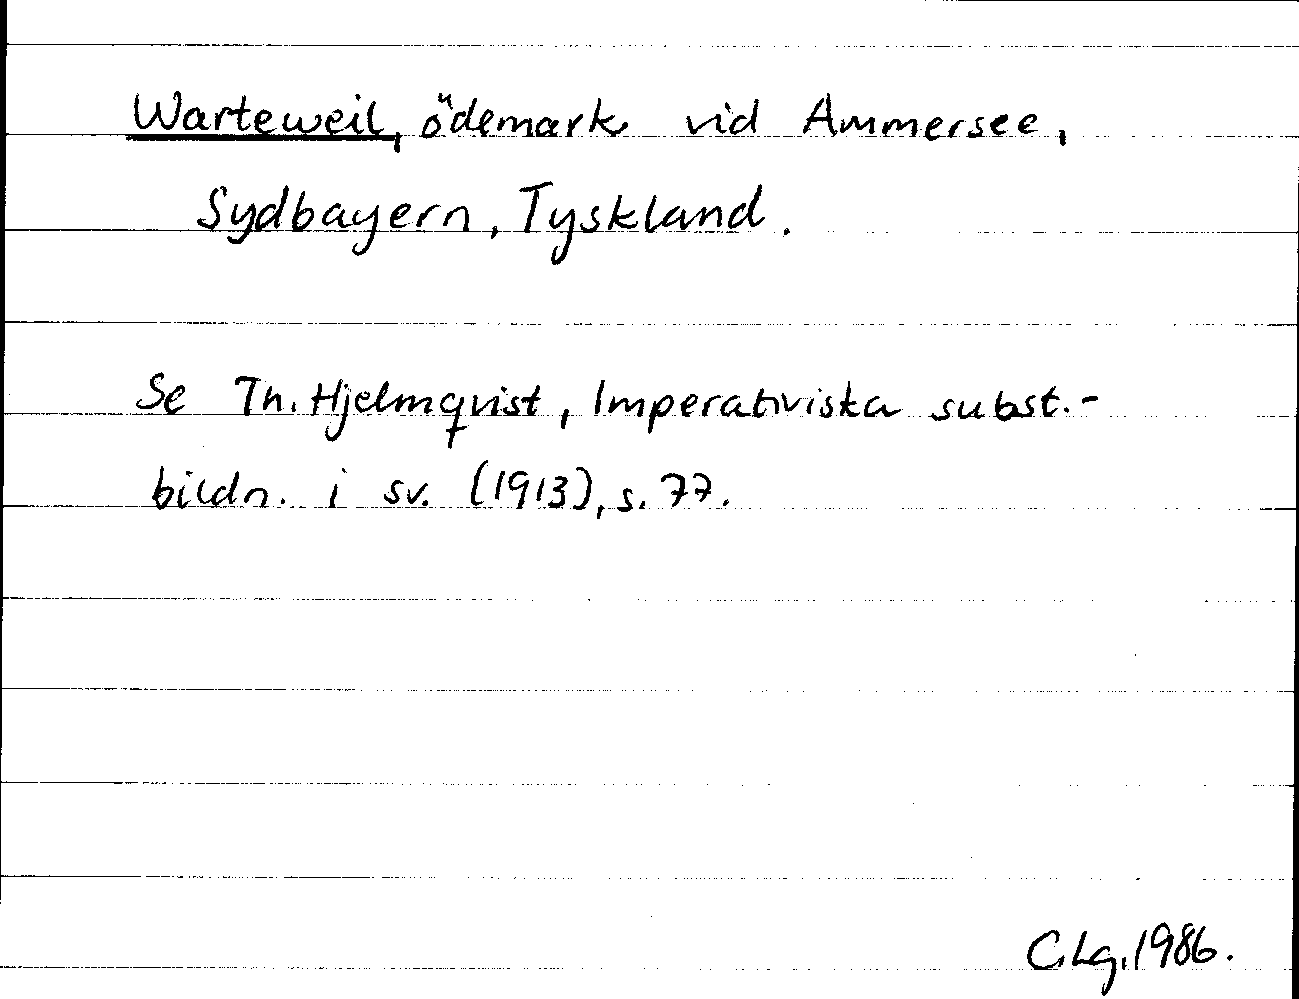 Warteweil, ödemark vid Ammersee,
Sydbayern, Tyskland.
Se Th. Hjelmqvist, Imperativiska subst.-
bildn. i sv. (1913), s. 77.
C.Lg. 1986.